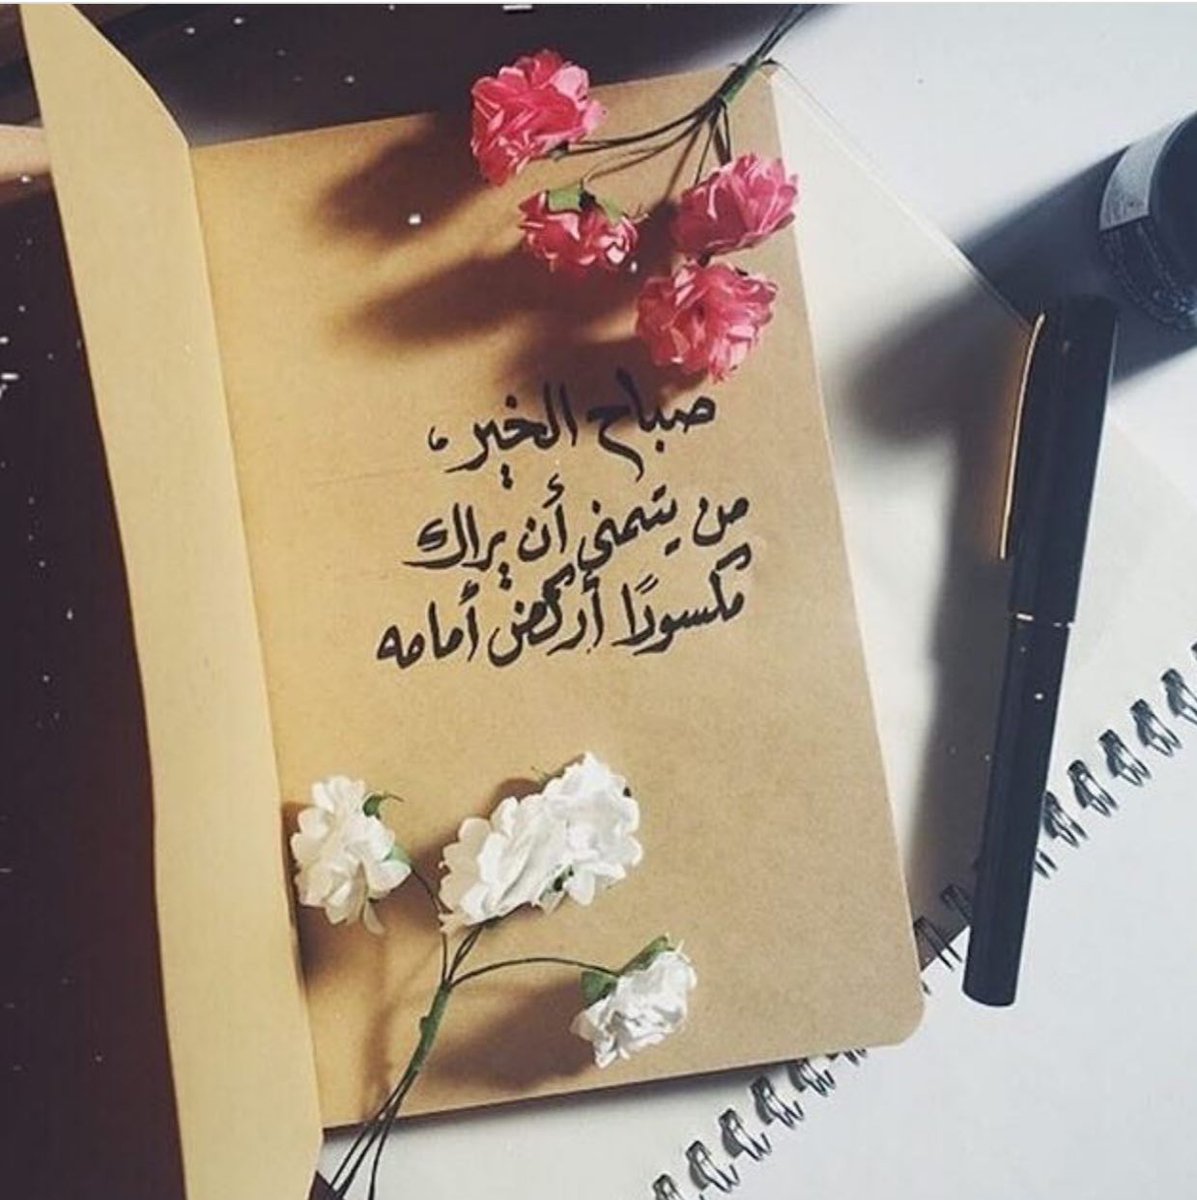 صباح الخير،
من يتمنى أن يراك
مكسورًا أركض أمامه